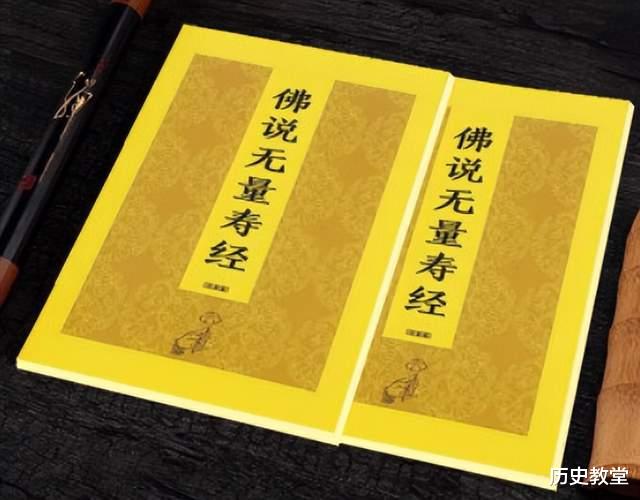 佛说无量寿经
佛说无量寿经
历史教堂